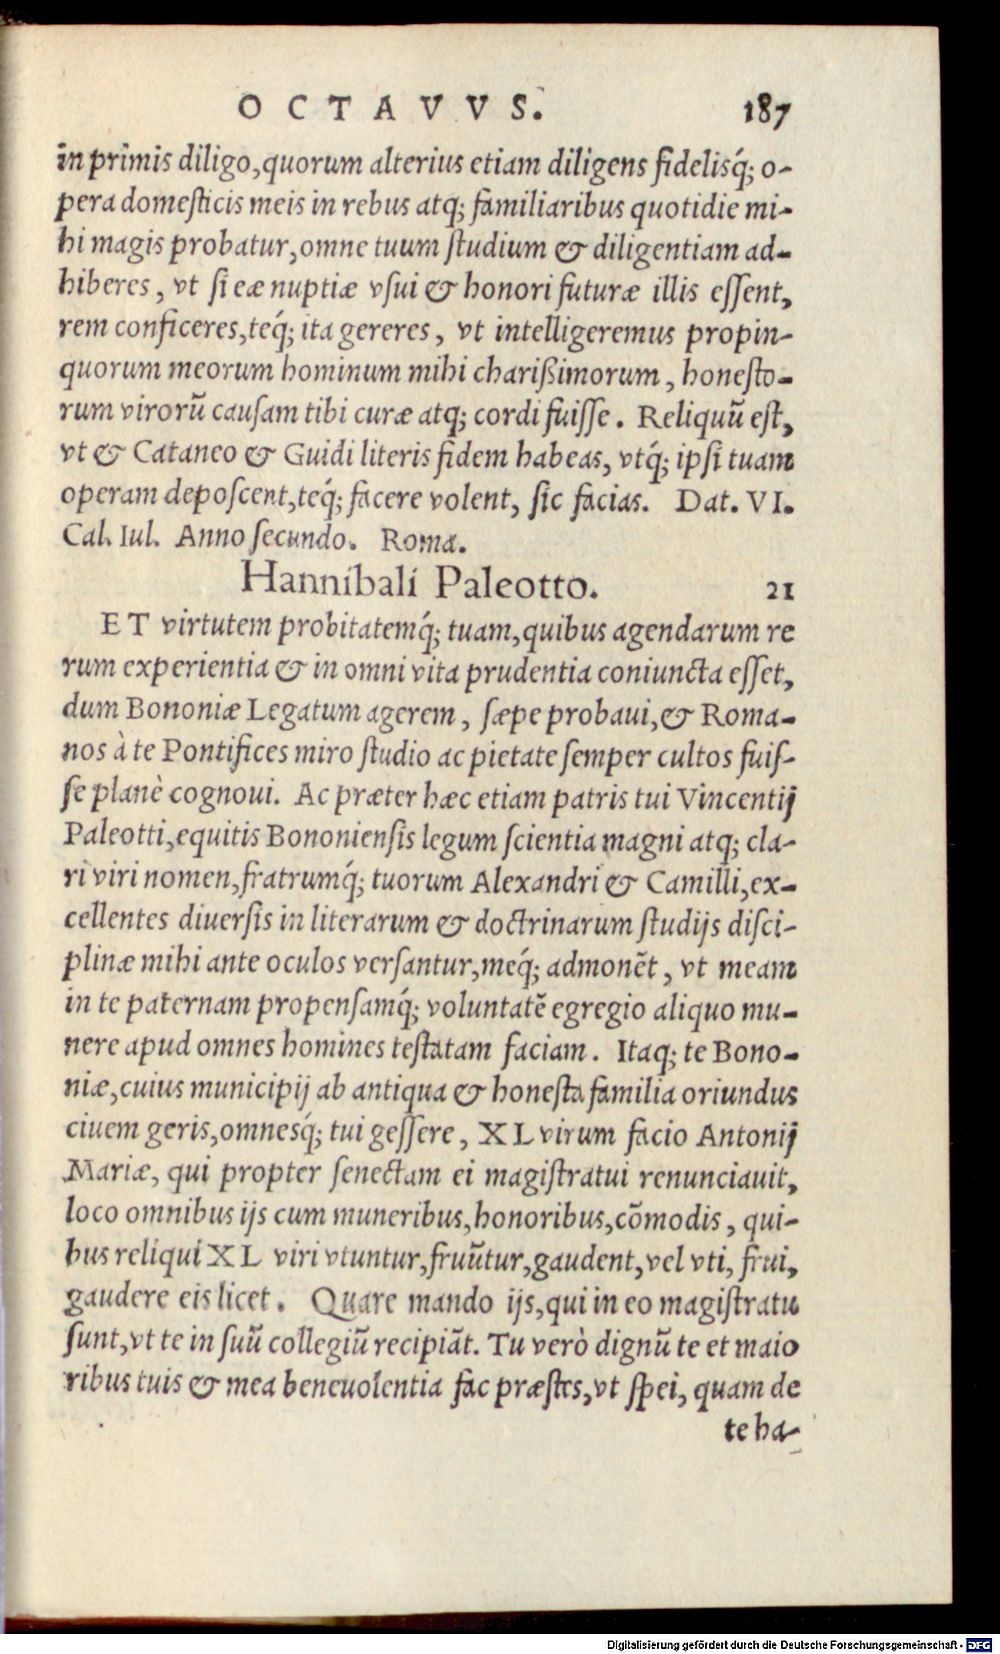 OCTAVVS. 187
in primis diligo, quorum alterius etiam diligens fidelisq́; o-
pera domesticis meis in rebus atq; familiaribus quotidie mi-
hi magis probatur, omne tuum studium & diligentiam ad-
hiberes, vt si eæ nuptiæ vsui & honori futuræ illis essent,
rem conficeres, teq́; ita gereres, vt intelligeremus propin-
quorum meorum hominum mihi charißimorum, honesto-
rum virorũ causam tibi curæ atq; cordi fuisse. Reliquũ est,
vt & Cataneo & Guidi literis fidem habeas, vtq́; ipsi tuam
operam deposcent, teq́; facere volent, sic facias. Dat. VI.
Cal. Iul. Anno secundo. Roma.
Hannibali Paleotto. 21
ET virtutem probitatemq́; tuam, quibus agendarum re
rum experientia & in omni vita prudentia coniuncta esset,
dum Bononiæ Legatum agerem, sæpe probaui, & Roma-
nos à te Pontifices miro studio ac pietate semper cultos fuis-
se planè cognoui. Ac præter hæc etiam patris tui Vincentij
Paleotti, equitis Bononiensis legum scientia magni atq; cla-
ri viri nomen, fratrumq́; tuorum Alexandri & Camilli, ex-
cellentes diuersis in literarum & doctrinarum studijs disci-
plinæ mihi ante oculos versantur, meq́; admonẽt, vt meam
in te paternam propensamq́; voluntatẽ egregio aliquo mu-
nere apud omnes homines testatam faciam. Itaq; te Bono-
niæ, cuius municipij ab antiqua & honesta familia oriundus
ciuem geris, omnesq́; tui gessere, XL virum facio Antonij
Mariæ, qui propter senectam ei magistratui renunciauit,
loco omnibus ijs cum muneribus, honoribus, cõmodis, qui-
bus reliqui XL viri vtuntur, fruũtur, gaudent, vel vti, frui,
gaudere eis licet. Quare mando ijs, qui in eo magistratu
sunt, vt te in suũ collegiũ recipiãt. Tu verò dignũ te et maio
ribus tuis & mea beneuolentia fac præstes, vt spei, quam de
te ha-
Digitalisierung gefördert durch die Deutsche Forschungsgemeinschaft - DFG